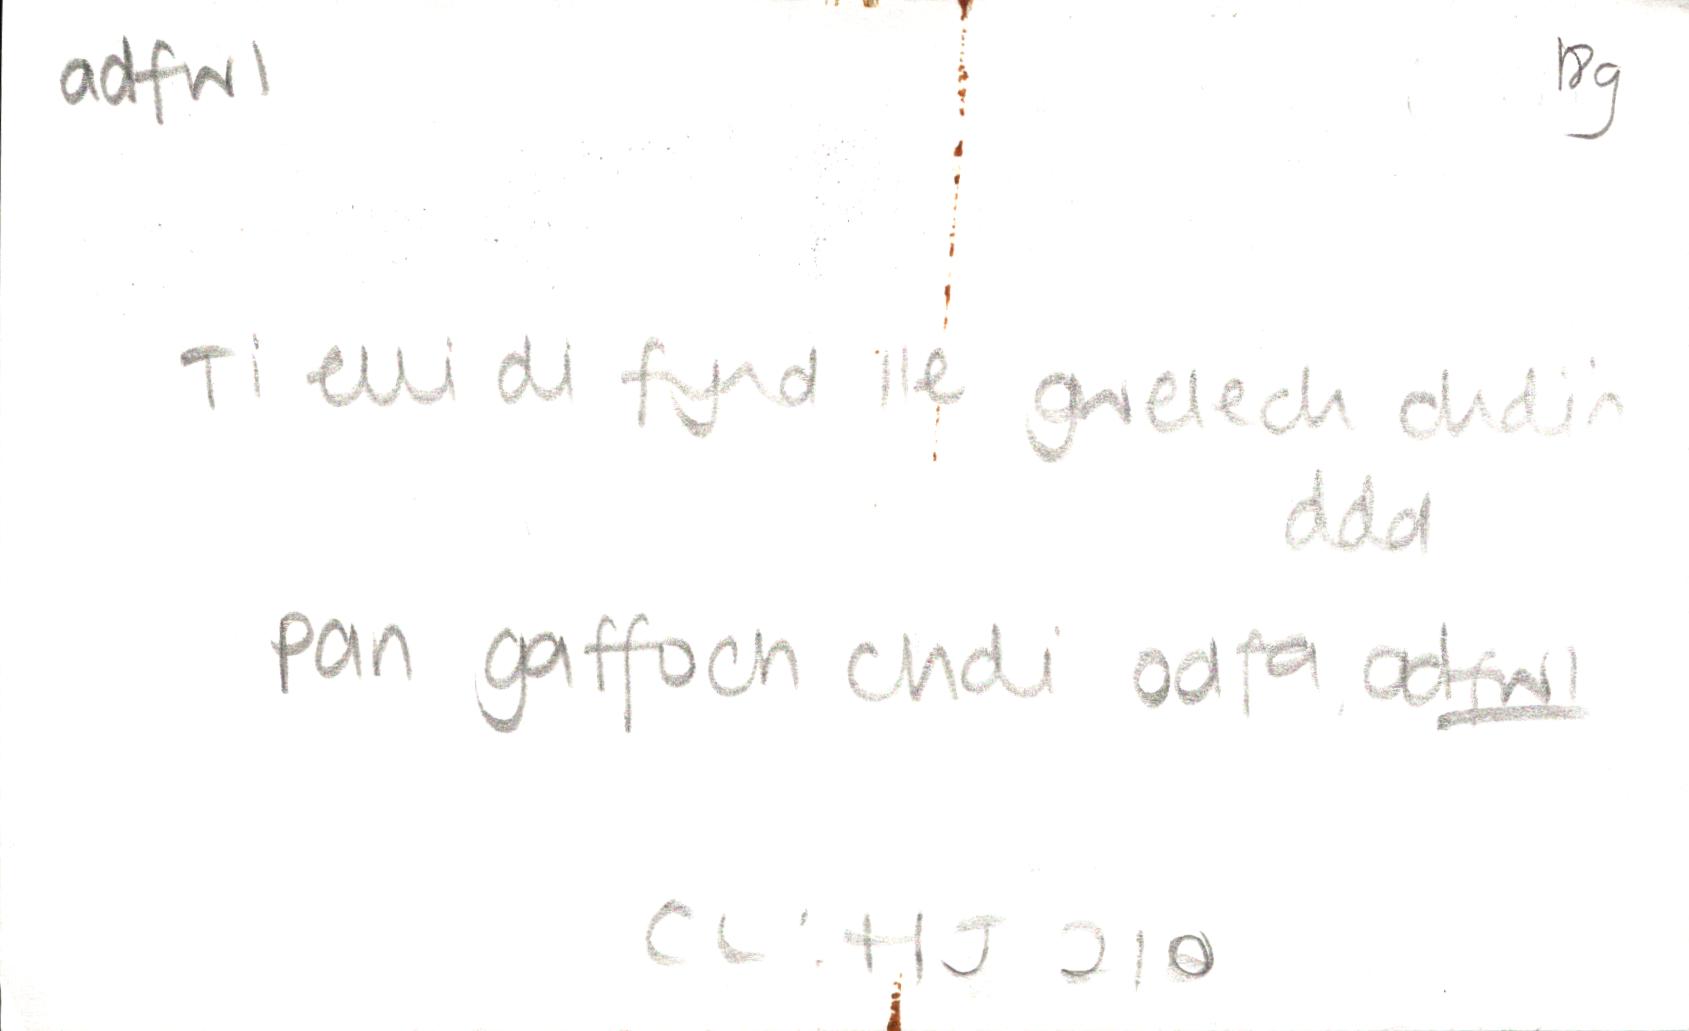 adfwl
18g
Ti elli di fynd lle gwelech chdi'n
dda
pan gaffoch chdi odfa, adfwl
CLl: HJ 210